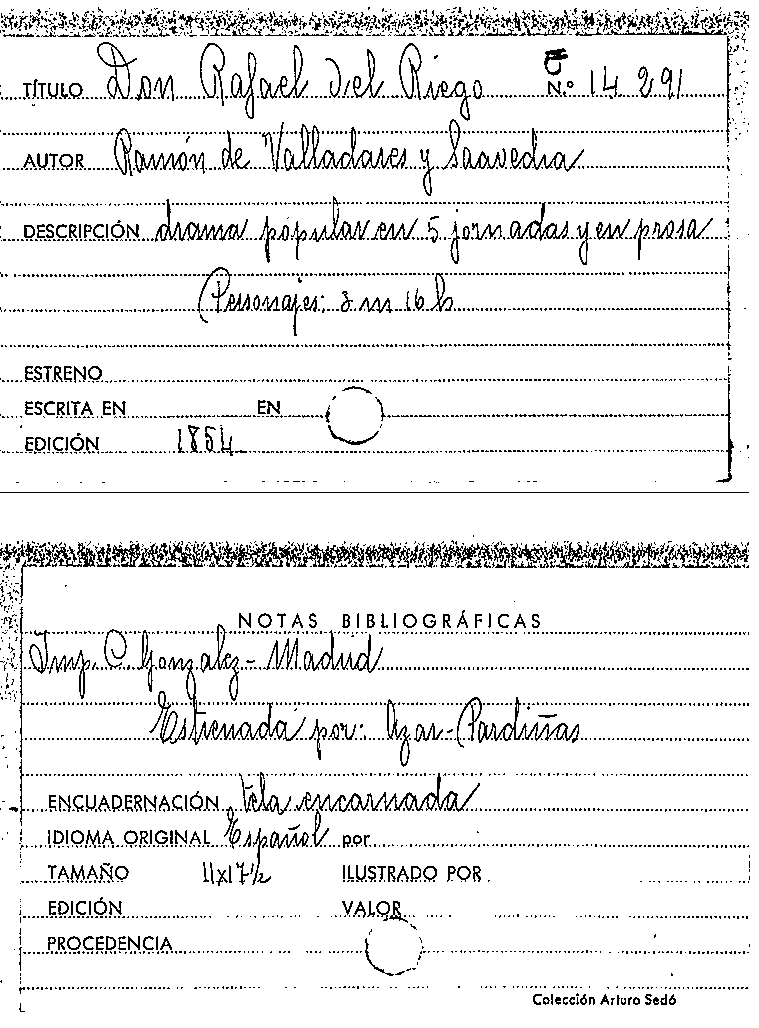 TÍTULO Don Rafael del Riego N.º 14 291
AUTOR Ramón de Valladares y Saavedra
DESCRIPCIÓN drama popular en 5 jornadas y en prosa
(Personajes: 2 m 16 h
ESTRENO
ESCRITA EN EN
EDICIÓN 1854
NOTAS BIBLIOGRÁFICAS
Imp. C. Gonzalez - Madrid
Estrenada por: Azar - Pardiñas
ENCUADERNACIÓN tela encarnada
IDIOMA ORIGINAL Español por
TAMAÑO 11x17½ ILUSTRADO POR
EDICIÓN VALOR
PROCEDENCIA
Colección Arturo Sedó